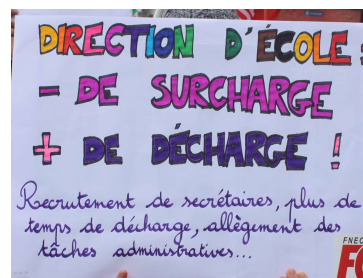 DIRECTION D'ÉCOLE :
- DE SURCHARGE
+ DE DÉCHARGE !
Recrutement de secrétaires, plus de
temps de décharge, allègement des
tâches administratives...
FNEC